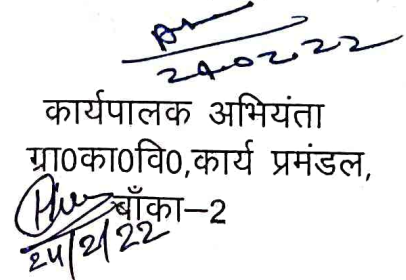 24.02.22
कार्यपालक अभियंता
ग्रा0का0वि0,कार्य प्रमंडल,
बाँका-2
24/2/22